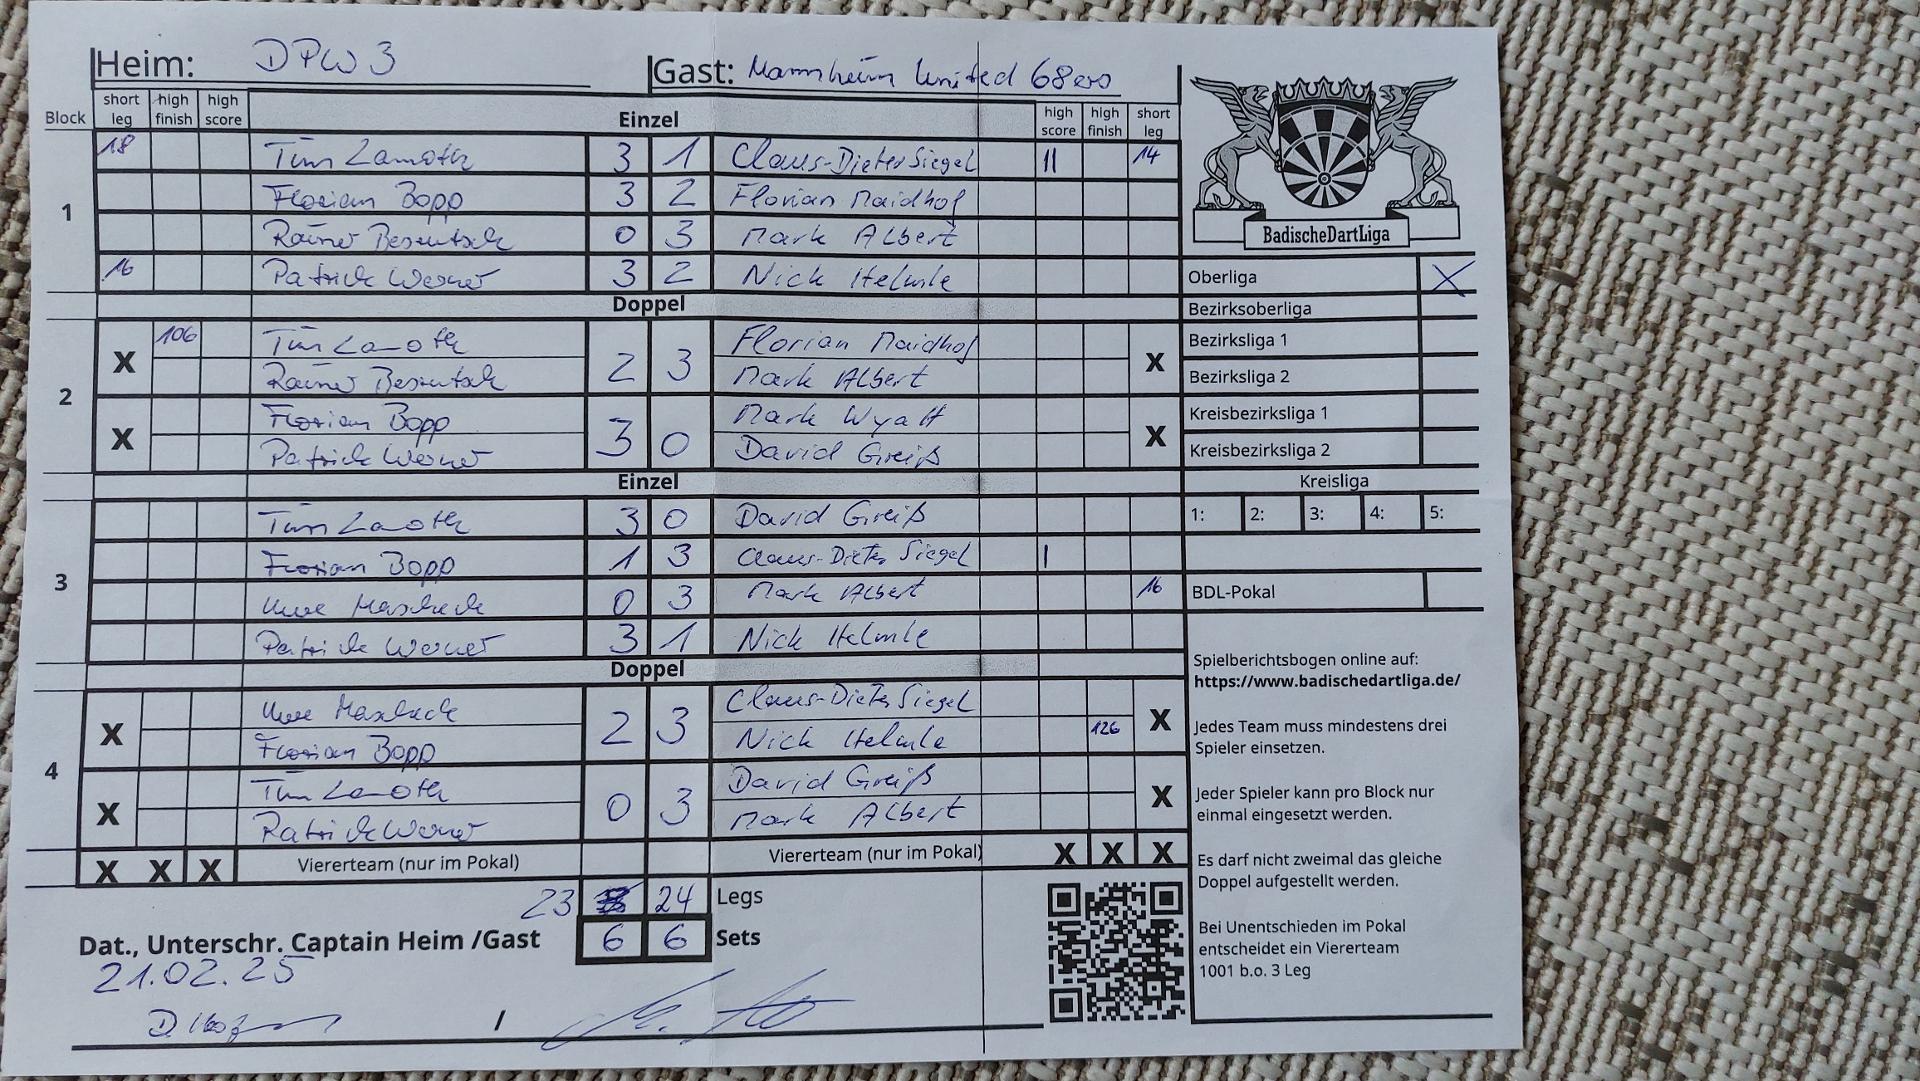 Heim: DPW 3 Gast: Mannheim United 68ers
Block short leg high finish high score Einzel high score high finish short leg
1
18 Tim Lamoth 3 1 Claus-Dieter Siegel II 14
Florian Bopp 3 2 Florian Maidhof
Rainer 0 3 Mark Albert
16 Patrick Werner 3 2 Nick Helmle
Doppel
2
X 106 Tim Lamoth 2 3 Florian Maidhof X
Rainer Mark Albert
X Florian Bopp 3 0 Mark Wyatt X
Patrick Werner David Greiß
Einzel
3
Tim Lamoth 3 0 David Greiß
Florian Bopp 1 3 Claus-Dieter Siegel I
Uwe 0 3 Mark Albert 16
Patrick Werner 3 1 Nick Helmle
Doppel
4
X Uwe 2 3 Claus-Dieter Siegel X
Florian Bopp Nick Helmle 126
X Tim Lamoth 0 3 David Greiß X
Patrick Werner Mark Albert
X X X Vierterteam (nur im Pokal) Vierterteam (nur im Pokal) X X X
23 24 Legs
Dat., Unterschr. Captain Heim /Gast 6 6 Sets
21.02.25
/
BadischeDartLiga
Oberliga X
Bezirksoberliga
Bezirksliga 1
Bezirksliga 2
Kreisbezirksliga 1
Kreisbezirksliga 2
Kreisliga
1: 2: 3: 4: 5:
BDL-Pokal
Spielberichtsbogen online auf:
https://www.badischedartliga.de/
Jedes Team muss mindestens drei
Spieler einsetzen.
Jeder Spieler kann pro Block nur
einmal eingesetzt werden.
Es darf nicht zweimal das gleiche
Doppel aufgestellt werden.
Bei Unentschieden im Pokal
entscheidet ein Viererteam
1001 b.o. 3 Leg